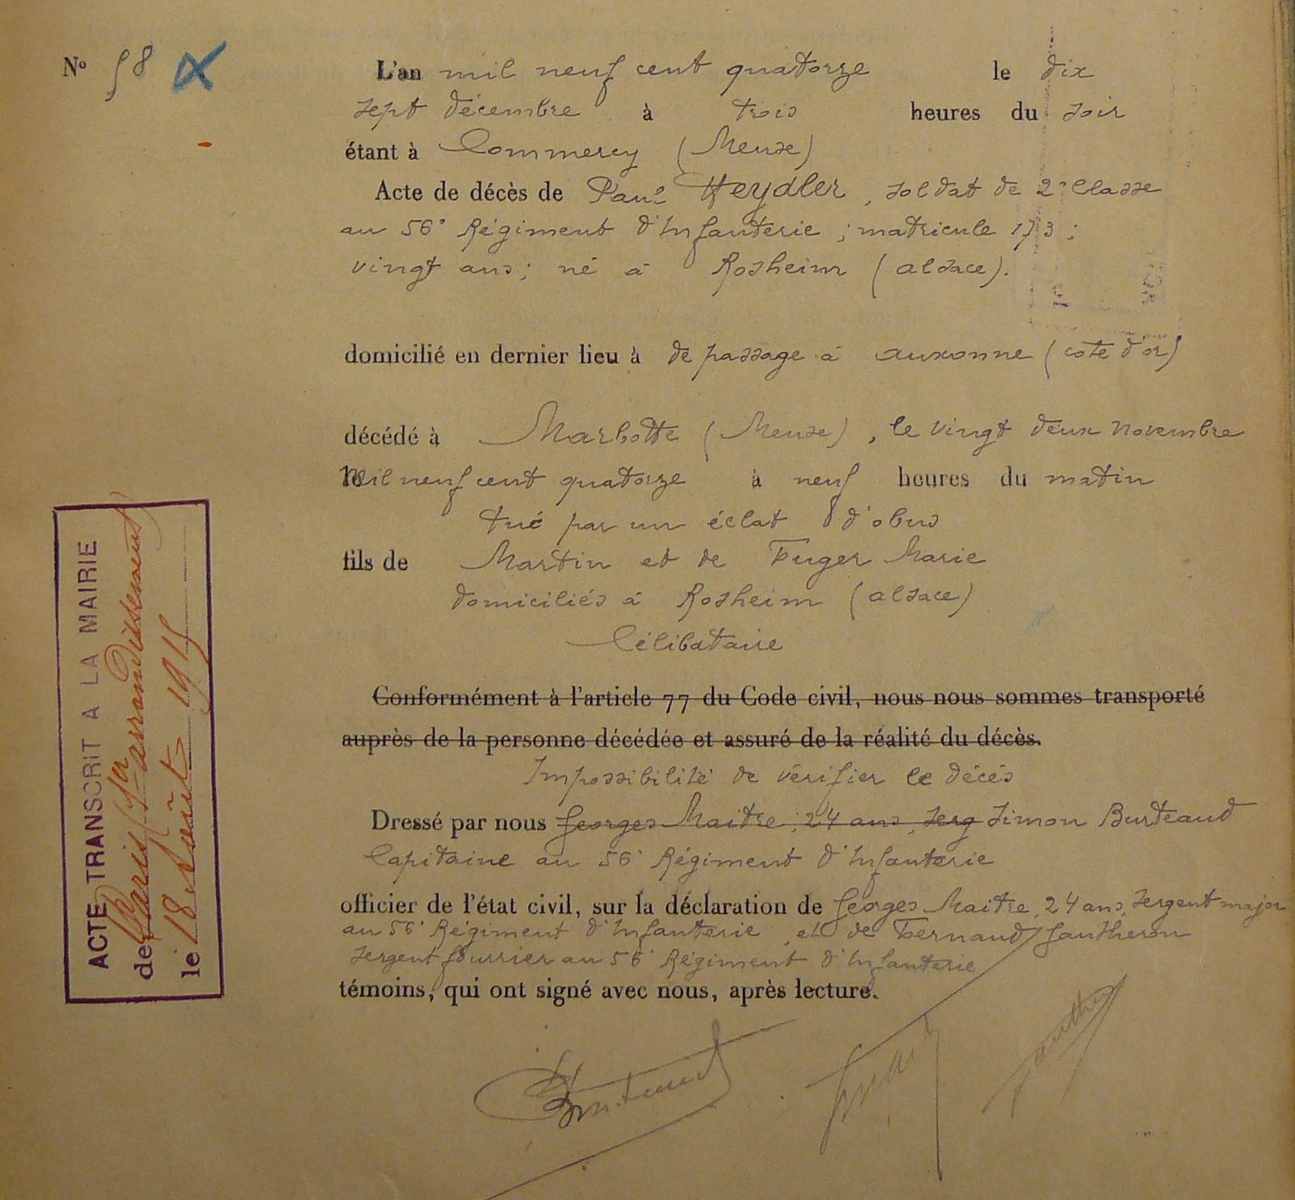 N° 58
L'an mil neuf cent quatorze le dix
sept décembre à trois heures du soir
étant à Commercy (Meuse)
Acte de décès de Paul Heydler, soldat de 2e Classe
au 56e Régiment d'Infanterie ; matricule 173 ;
vingt ans ; né à Rosheim (alsace).
domicilié en dernier lieu à de passage à auxonne (cote d'or)
décédé à Marbotte (Meuse), le vingt deux novembre
Mil neuf cent quatorze à neuf heures du matin
tué par un éclat d'obus
fils de Martin et de Fuger Marie
domiciliés à Rosheim (alsace)
Célibataire
Conformément à l'article 77 du Code civil, nous nous sommes transporté
auprès de la personne décédée et assuré de la réalité du décès.
Impossibilité de vérifier le décès
Dressé par nous Georges Maitre, 24 ans, Serg Simon Burteaud
Capitaine au 56e Régiment d'Infanterie
officier de l'état civil, sur la déclaration de Georges Maitre, 24 ans, Sergent major
au 56e Régiment d'Infanterie, et de Fernand Gautheron
Sergent fourrier au 56e Régiment d'Infanterie
témoins, qui ont signé avec nous, après lecture.
ACTE TRANSCRIT A LA MAIRIE
de Paris 1er arrondissement
le 18 Août 1915